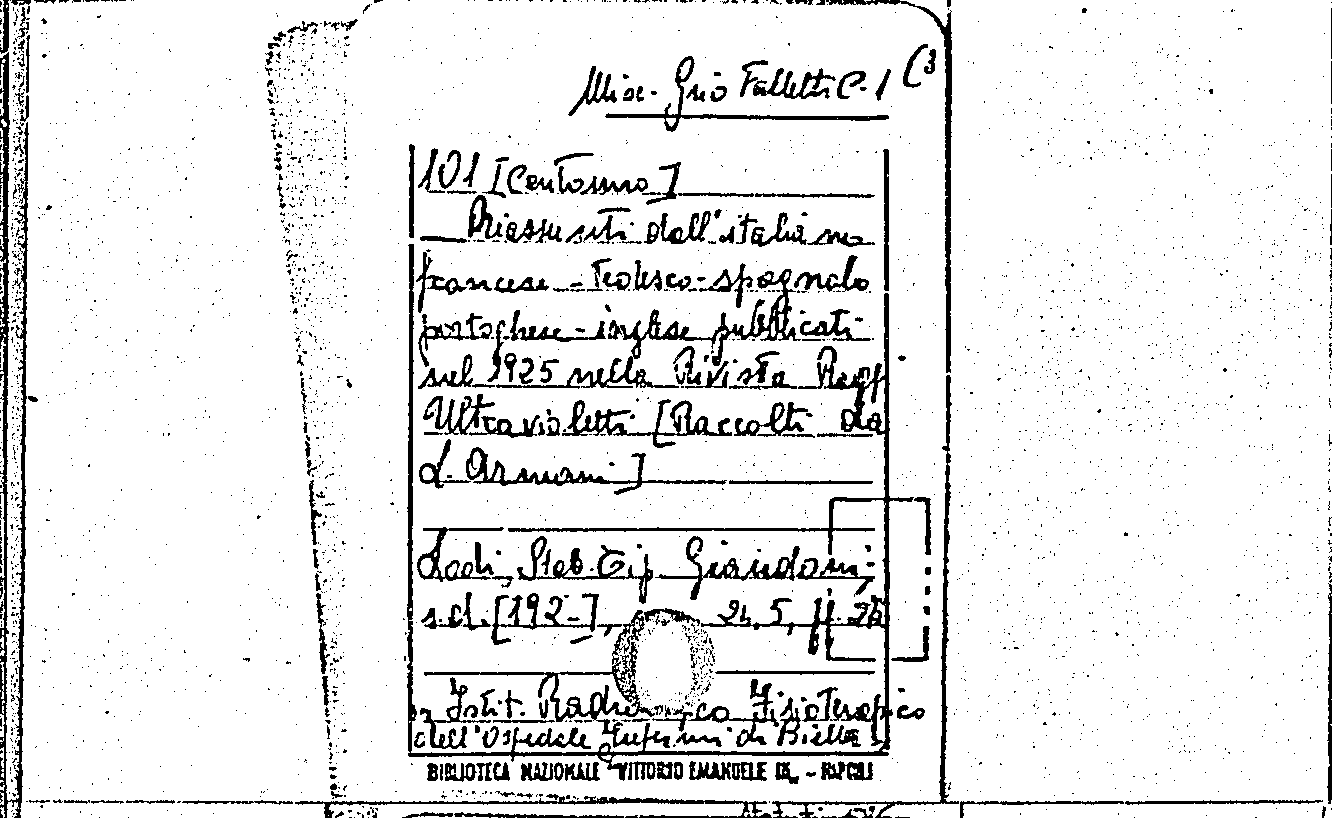 Misc. Grio Falletti C. 1 (3
101 [Centouno]
Riassunti dall'italiano
francese - tedesco - spagnolo
portoghese - inglese pubblicati
nel 1925 nella Rivista Raggi
Ultravioletti [Raccolti da
L. Armani]
Lodi, Stab. Tip. Giandoni,
s.d. [192-], 24.5, pp. 26
Istit. Fisioterapico
dell'Ospedale Infermi di Biella
BIBLIOTECA NAZIONALE "VITTORIO EMANUELE III" - NAPOLI